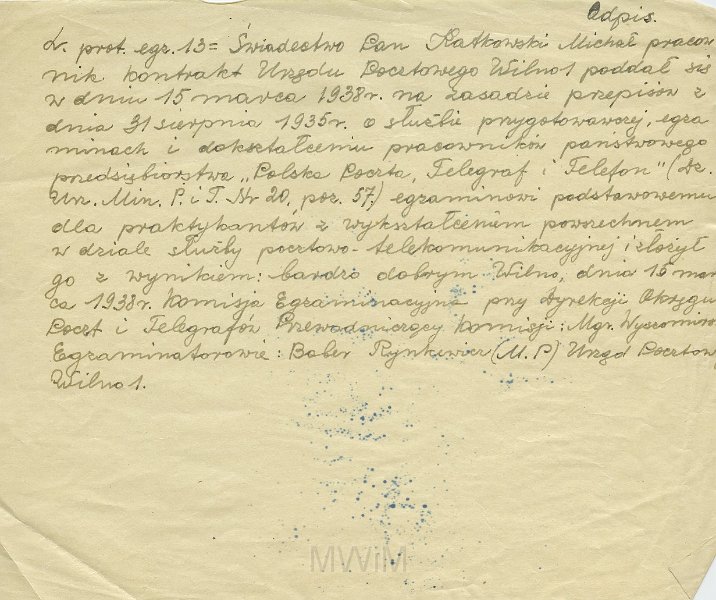 Odpis.
L. prot. egz. 13 = Świadectwo Pan Katkowski Michał pracow
nik kontrakt Urzędu Pocztowego Wilno 1 poddał się
w dniu 15 marca 1938 r. na zasadzie przepisów z
dnia 31 sierpnia 1935 r. o służbie przygotowawczej, egza
minach i dokształceniu pracowników państwowego
przedsiębiorstwa "Polska Poczta, Telegraf i Telefon" (Dz.
Urz. Min. P. i T. Nr 20, poz. 57.) egzaminowi podstawowemu
dla praktykantów z wykształceniem powszechnem
w dziale służby pocztowo-telekomunikacyjnej i złożył
go z wynikiem: bardzo dobrym Wilno, dnia 15 mar
ca 1938 r. Komisja Egzaminacyjna przy Dyrekcji Okręgu
Poczt i Telegrafów Przewodniczący Komisji: Mgr. Wyszomirs
Egzaminatorowie: Baber Rynkiewicz (M. P.) Urząd Pocztow
Wilno 1.
MWiM